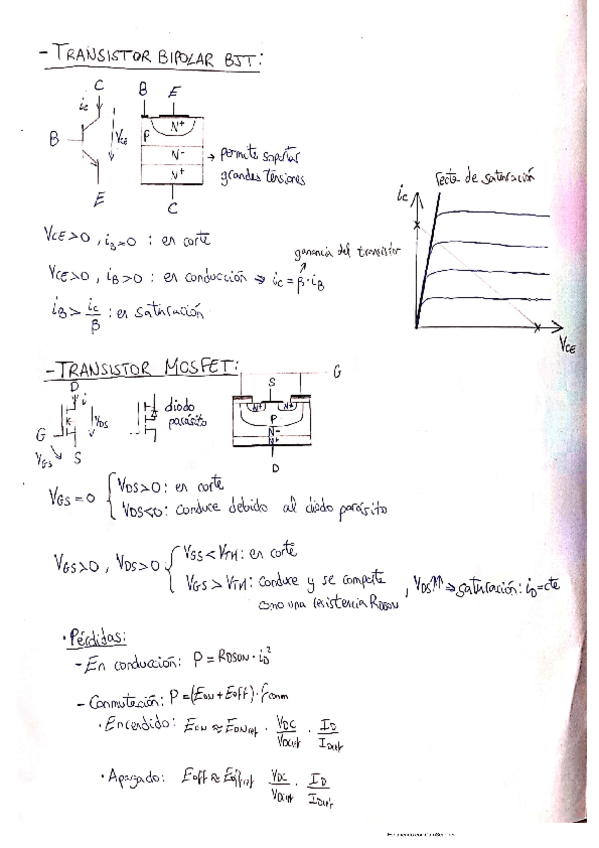 - TRANSISTOR BIPOLAR BJT:
C
B E
ic
N+
B
VCE
P
N-
→ permite soportar
grandes tensiones
N+
E
C
recta de saturación
ic
VCE
VCE>0, iB=0 : en corte
ganancia del transistor
VCE>0, iB>0 : en conducción ⇒ ic = β·iB
iB > ic/β : en saturación
- TRANSISTOR MOSFET:
G
D
S
i
diodo
parásito
VDS
N+ N+
P
N-
N+
G
VGS
S
D
VGS = 0 { VDS>0: en corte
VDS<0: conduce debido al diodo parásito
VGS>0, VDS>0 { VGS < VTH: en corte
VGS > VTH: conduce y se comporta
como una resistencia RDSON
, VDS↑↑ ⇒ saturación: iD=cte
· Pérdidas:
- En conducción: P = RDSON · iD²
- Conmutación: P = (EON + Eoff) · fconm
· Encendido: EON ≈ EONref · VDC/VDCref · ID/IDref
· Apagado: Eoff ≈ Eoffref VDC/VDCref · ID/IDref